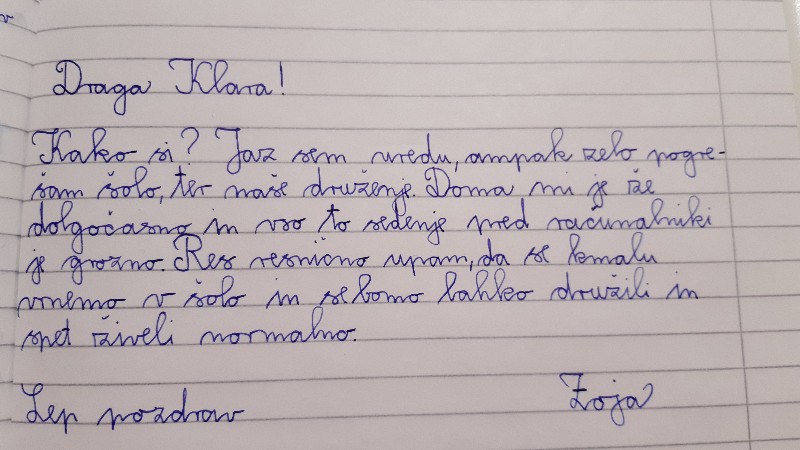 Draga Klara!
Kako si? Jaz sem vredu, ampak zelo pogre-
šam šolo, ter naše druženje. Doma mi je že
dolgočasno in vso to sedenje pred računalniki
je grozno. Res resnično upam, da se kmalu
vrnemo v šolo in se bomo lahko družili in
spet živeli normalno.
Lep pozdrav Zoja